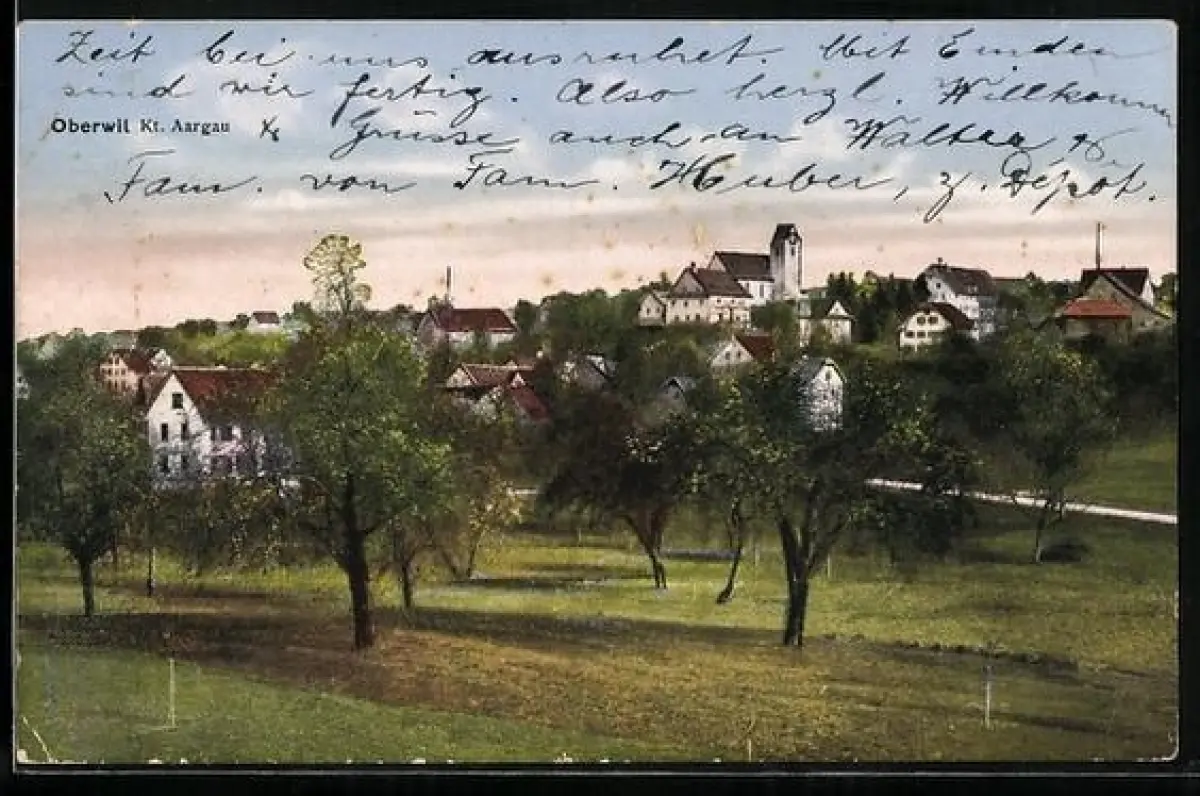 Zeit bei uns ausruhet. Mit Emden
sind wir fertig. Also herzl. Willkomm
Oberwil Kt. Aargau
Grüsse auch an Walter &
Fam. von Fam. Huber, z. Depot.